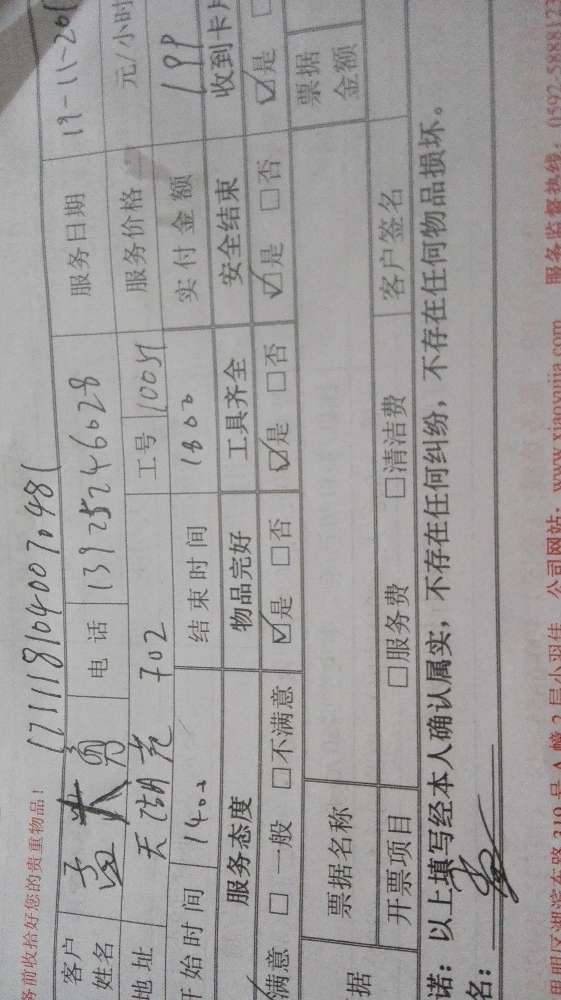 务前收拾好您的贵重物品！
客户姓名 孟大勇 电话 13925246028 服务日期 17-11-201
地址 天湖苑 702 工号 10051 服务价格 元/小时
开始时间 1400 结束时间 1800 实付金额 199
服务态度 物品完好 工具齐全 安全结束 收到卡片
满意 □一般 □不满意 ☑是 □否 ☑是 □否 ☑是 □否 ☑是
据 票据名称 票据金额
开票项目 □服务费 □清洁费 客户签名
诺：以上填写经本人确认属实，不存在任何纠纷，不存在任何物品损坏。
名：
思明区湖滨东路319号A幢2层小羽佳 公司网站：www.xiaoyujia.com 服务监督热线：0592-5888123